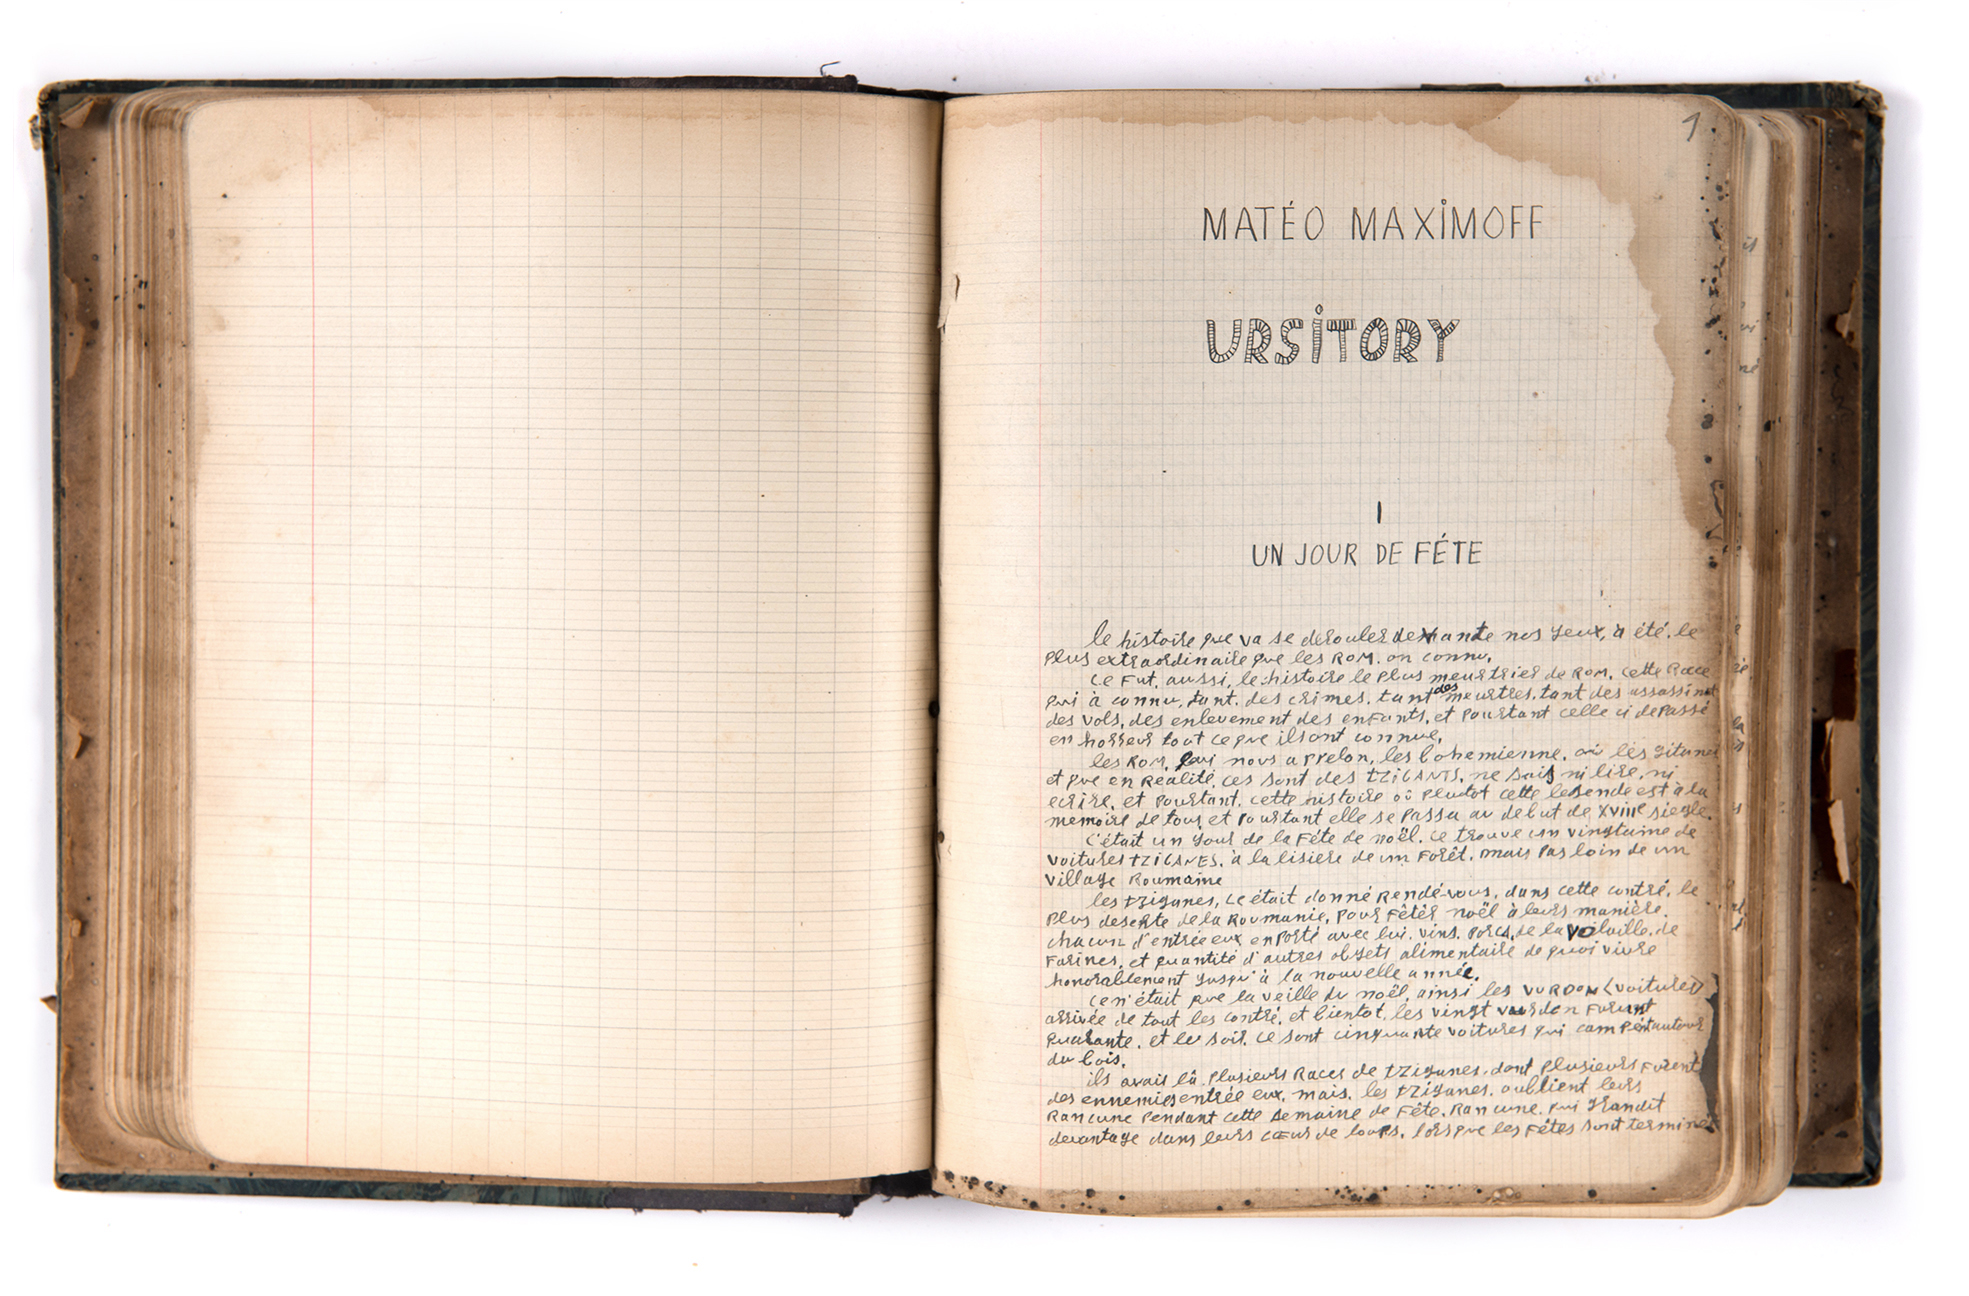 1
MATÉO MAXIMOFF
URSITORY
I
UN JOUR DE FÉTE
le histoire que va se derouler devante nos yeux, à été, le
plus extraordinaire que les ROM. on connu.
ce fut, aussi, le histoire le plus meurtrier de ROM, cette Race
qui à connu, tant, des crimes, tant des meurtres, tant des assassinat
des vols, des enlevement des enfants, et pourtant celle ci depassé
en horreur tout ce que ils ont connue.
les ROM, qui nous aprelon, les bohemienne, où les gitane
et que en Réalité, ces sont des TZIGANTS, ne sais ni lire, ni
ecrire, et pourtant, cette histoire où plutot cette legende est à la
memoire de tous et pourtant elle se passa au debut de XVIIIe siegle.
C'était un Jour de la Féte de noël. ce trouve un vingtaine de
voitures TZIGANES, à la lisiere de un Forêt, mais pas loin de un
village Roumaine
les tziganes, ce était donné Rendé-vous, dans cette contré, le
plus deserte de la Roumanie, pour Fêtér noël à leurs manière.
chacun d'entrée eux enporté avec lui, vins, porcs, de la volaille, de
Farines, et quantité d'autres objets alimentaire de quoi vivre
honorablement jusqu'à la nouvelle année.
ce n'était que la veille du noël, ainsi les VURDON (voitures)
arrivée de tout les contré, et bientot, les vingt vurdon Furent
quarante, et le soir, ce sont cinquante voitures qui campent autour
du bois.
ils avait là plusieurs Races de tziganes, dont plusieurs Furent
des ennemies entrée eux, mais, les tziganes, oublient leurs
Rancune pendant cette semaine de Fête, Rancune, qui grandit
devantage dans leurs cœur de loups, lorsque les Fétes sont terminé